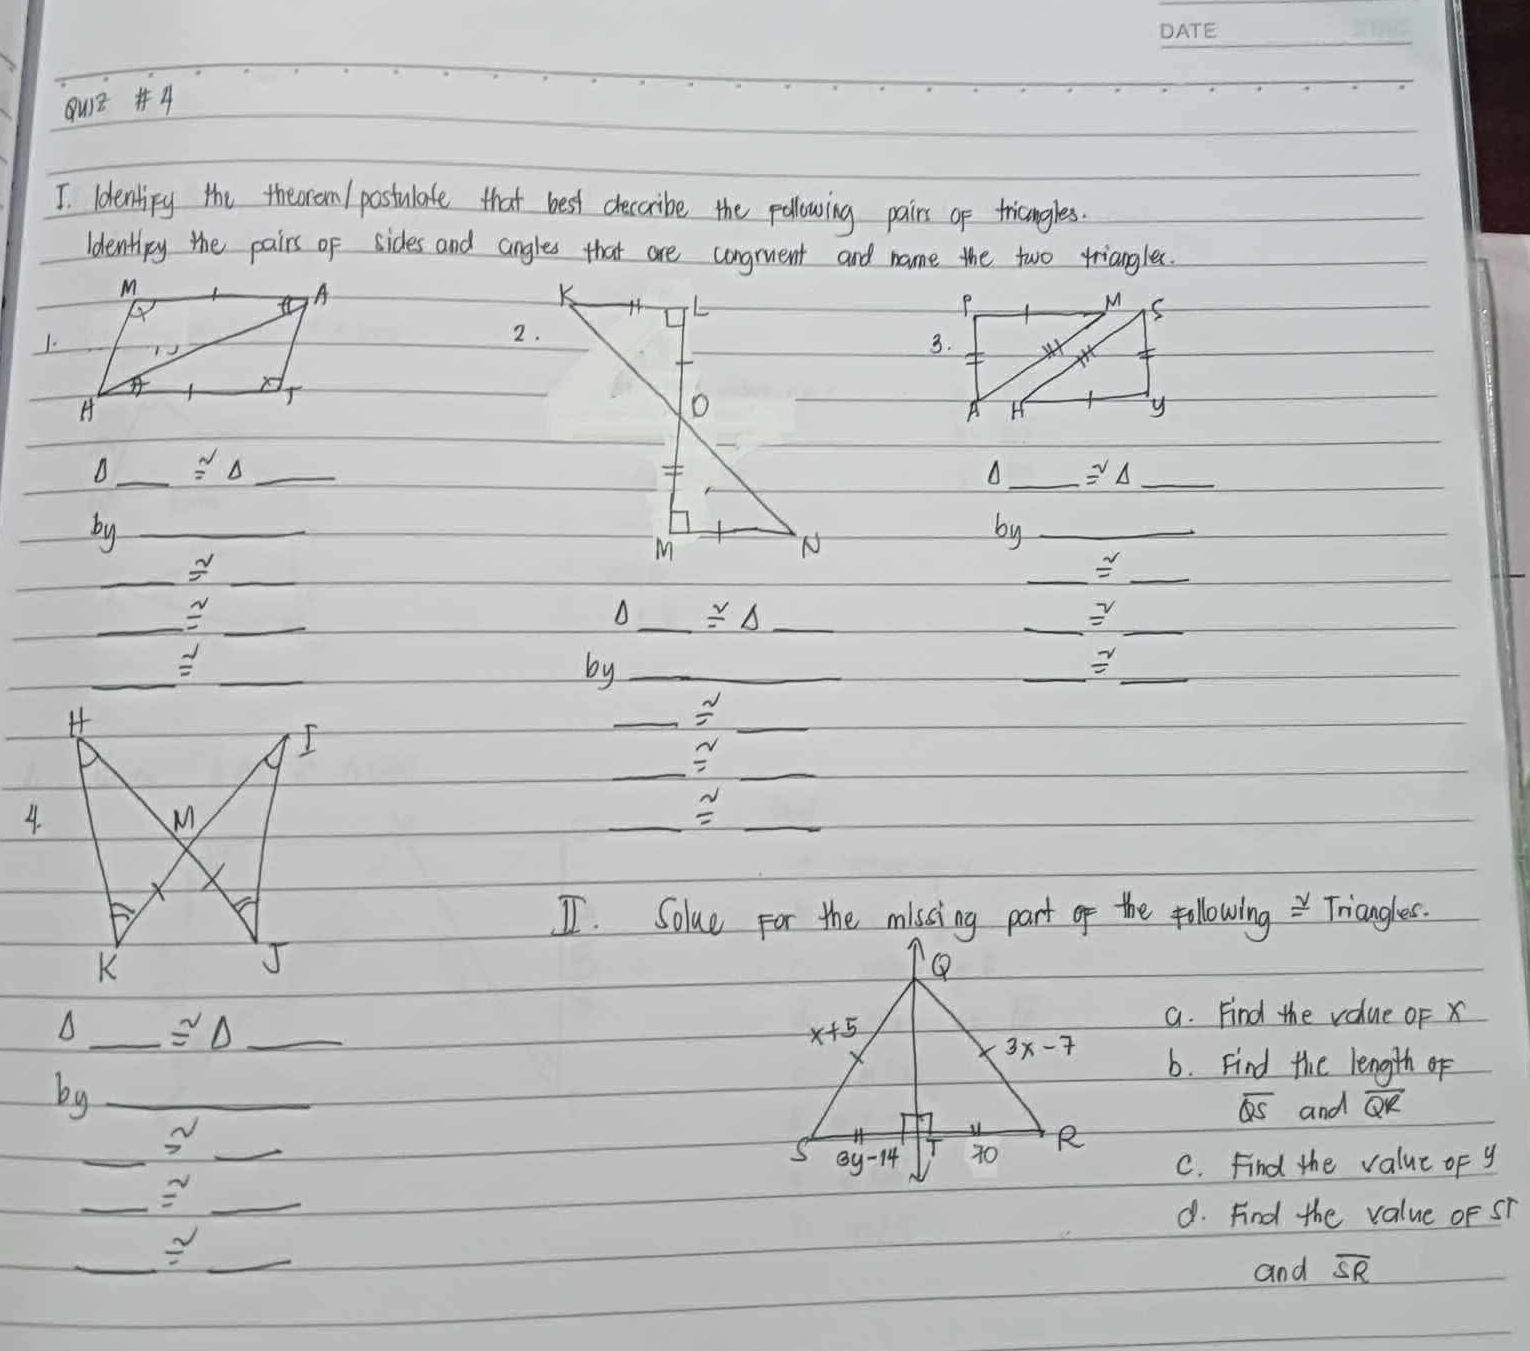 DATE
QUIZ #4
I. Identify the theorem/postulate that best describe the following pairs of triangles.
Identify the pairs of sides and angles that are congruent and name the two triangles.
1.
M
A
H
T
2.
K
L
O
M
N
3.
P
M
S
A
H
Y
Δ ___ ≅ Δ ___
by ___
___ ≅ ___
___ ≅ ___
___ ≅ ___
Δ ___ ≅ Δ ___
by ___
___ ≅ ___
___ ≅ ___
___ ≅ ___
Δ ___ ≅ Δ ___
by ___
___ ≅ ___
___ ≅ ___
___ ≅ ___
4.
H
I
M
K
J
Δ ___ ≅ Δ ___
by ___
___ ≅ ___
___ ≅ ___
___ ≅ ___
II. Solve for the missing part of the following ≅ Triangles.
Q
x+5
3x-7
S
T
R
3y-14
70
a. Find the value of x
b. Find the length of
QS and QR
c. Find the value of y
d. Find the value of ST
and SR